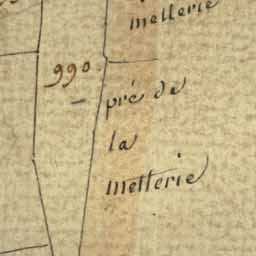 mellerie
990
pré de
la
metterie